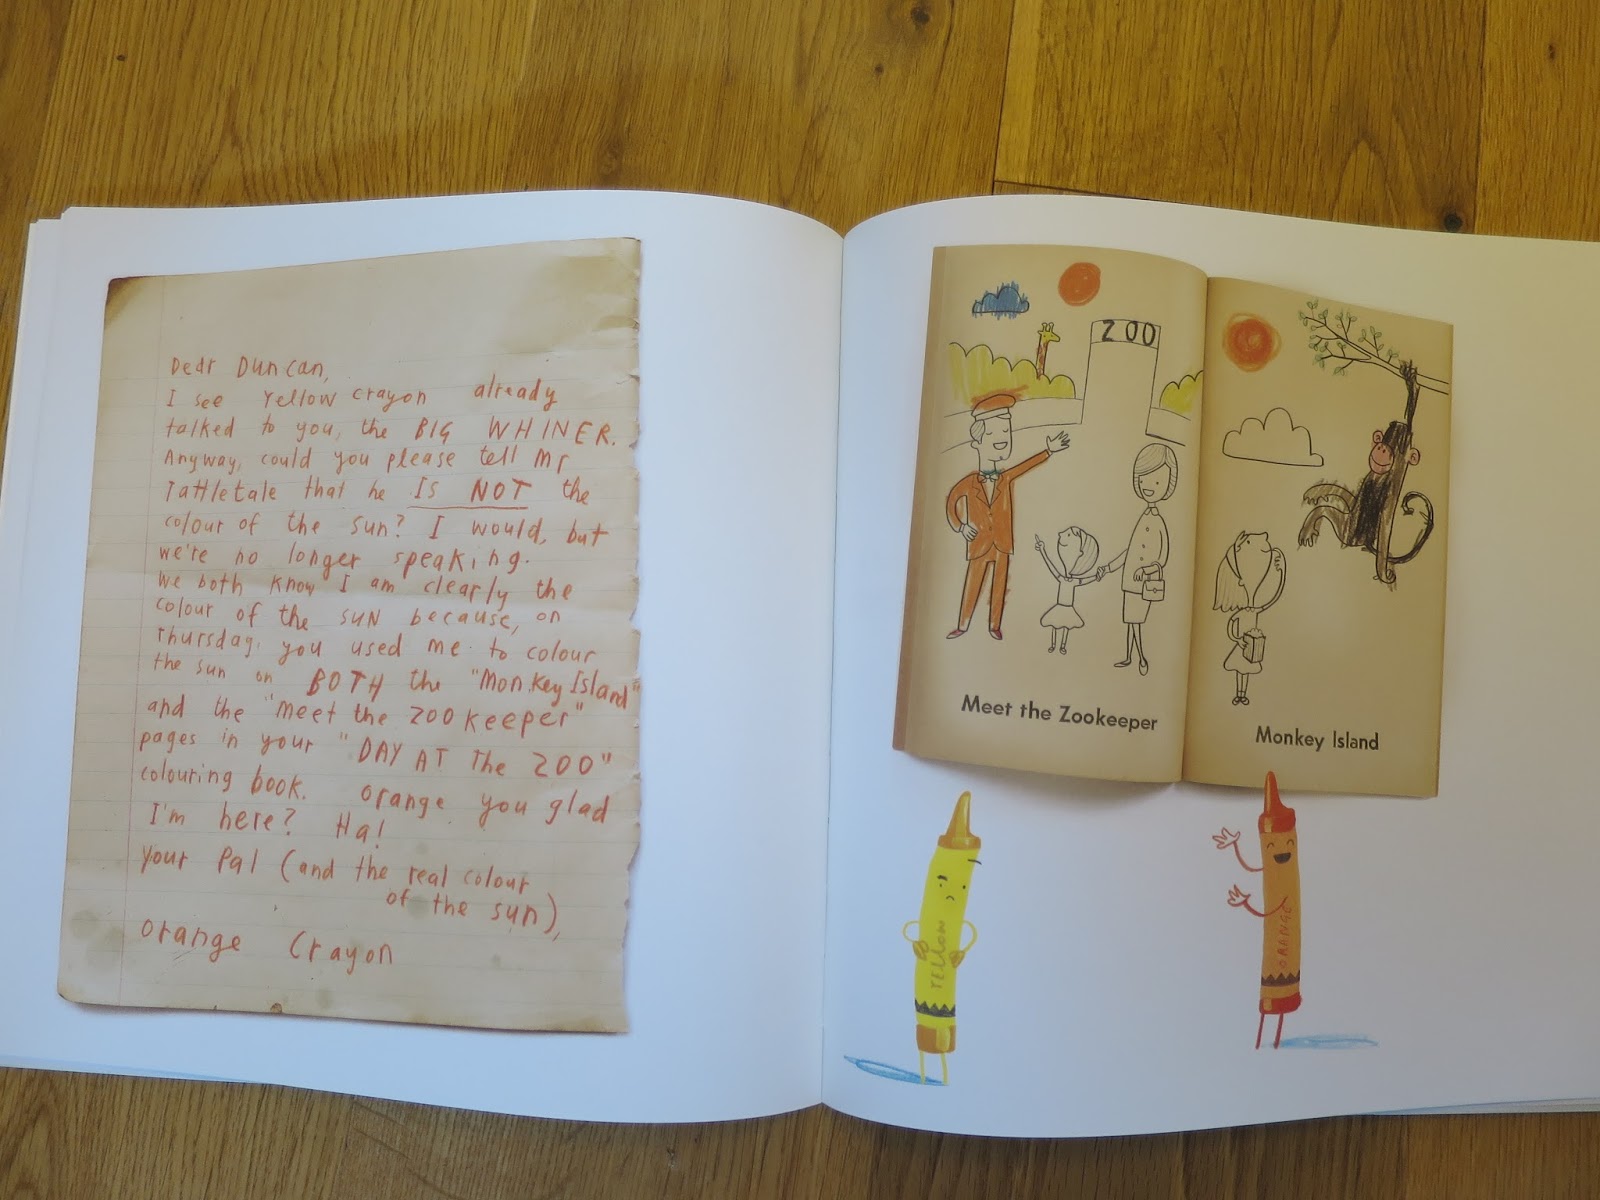 Dear Duncan,
I see Yellow crayon already
talked to you, the BIG WHINER.
Anyway, could you please tell Mr
Tattletale that he IS NOT the
colour of the sun? I would, but
we're no longer speaking.
We both know I am clearly the
colour of the sun because, on
Thursday, you used me to colour
the sun on BOTH the "Monkey Island"
and the "meet the zookeeper"
pages in your "DAY AT The ZOO"
colouring book. orange you glad
I'm here? Ha!
Your Pal (and the real colour
of the sun),
orange Crayon
ZOO
Meet the Zookeeper
Monkey Island
YELLOW
ORANGE